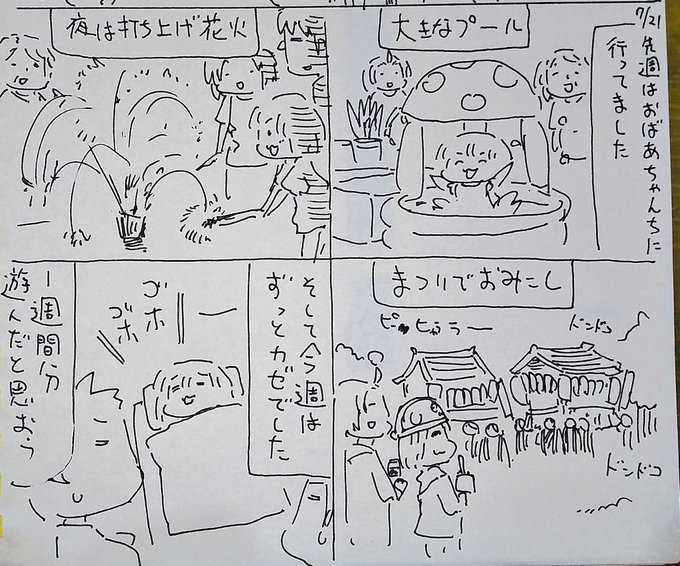 7/21 先週はおばあちゃんちに
行ってました
大きなプール
夜は打ち上げ花火
まつりでおみこし
ピーヒャラー
ドンドコ
ドンドコ
そして今週は
ずっとカゼでした
ゴホ
ゴホ
1週間分
遊んだと思おう